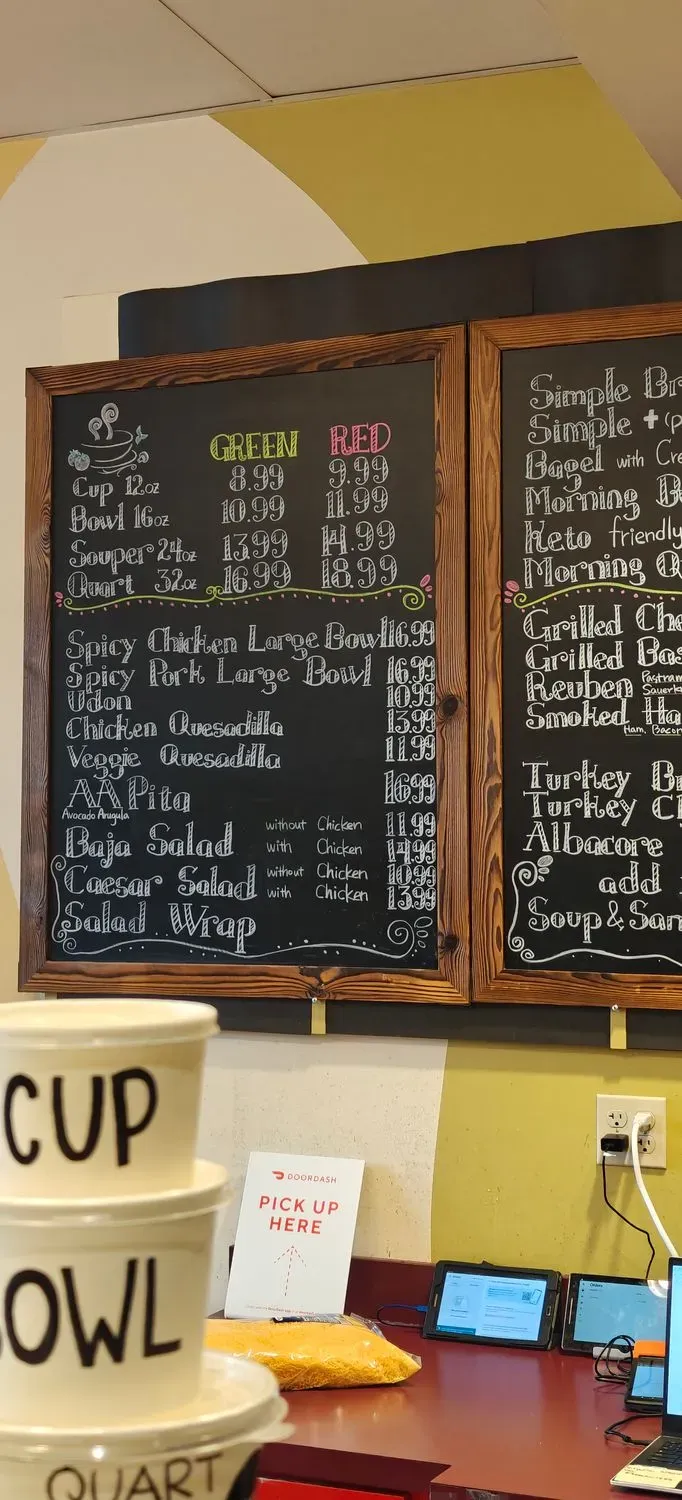 GREEN RED
Cup 12oz 8.99 9.99
Bowl 16oz 10.99 11.99
Souper 24oz 13.99 14.99
Quart 32oz 16.99 18.99
Spicy Chicken Large Bowl 16.99
Spicy Pork Large Bowl 16.99
Udon 10.99
Chicken Quesadilla 13.99
Veggie Quesadilla 11.99
AA Pita 16.99
Avocado Arugula
Baja Salad without Chicken 11.99
with Chicken 14.99
Caesar Salad without Chicken 10.99
with Chicken 13.99
Salad Wrap
Simple Br
Simple + (p
Bagel with Cre
Morning B
Keto friendly
Morning Q
Grilled Che
Grilled Bas
Reuben Pastram
Sauerk
Smoked Ha
Ham, Bacon
Turkey B
Turkey Cl
Albacore
add
Soup & San
CUP
BOWL
QUART
DOORDASH
PICK UP
HERE
Orders